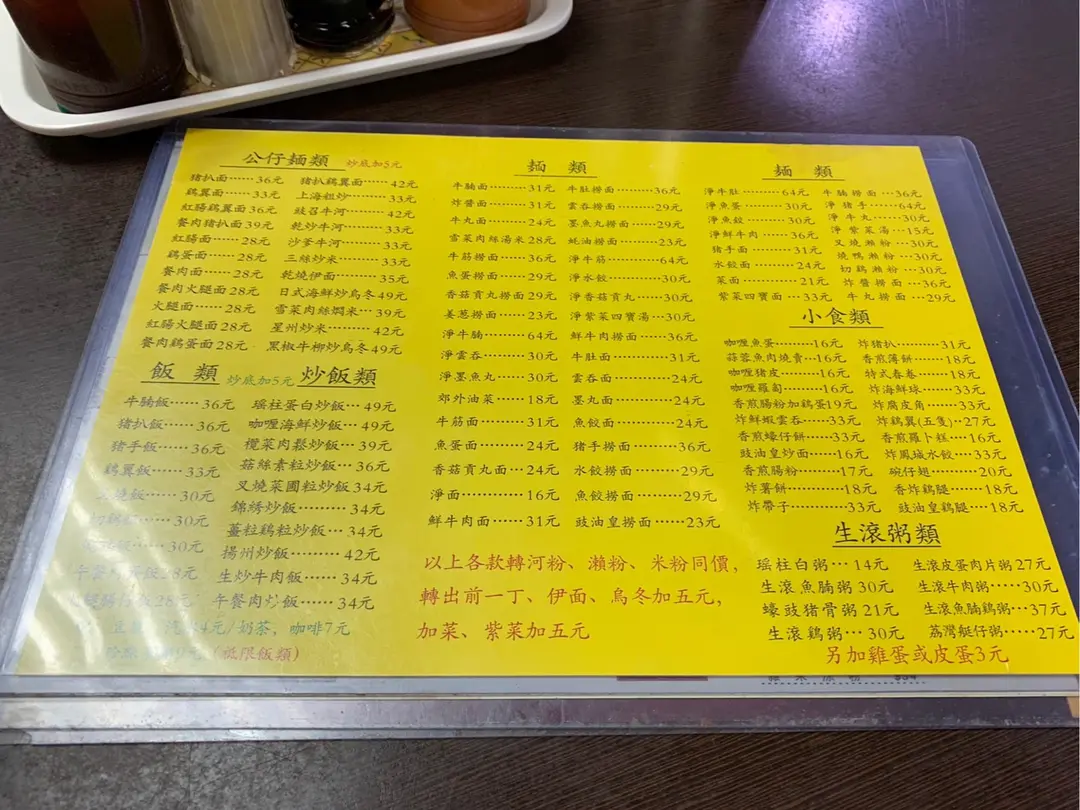 公仔麵類 炒底加5元
猪扒面……36元 猪扒鷄翼面……42元
鷄翼面……33元 上海粗炒………33元
紅腸鷄翼面36元 豉召牛河………42元
餐肉猪扒面39元 乾炒牛河………33元
紅腸面……28元 沙爹牛河………33元
鷄蛋面……28元 三絲炒米………33元
餐肉面……28元 乾燒伊面………35元
餐肉火腿面28元 日式海鮮炒烏冬49元
火腿面……28元 雪菜肉絲燜米…39元
紅腸火腿面28元 星州炒米………42元
餐肉鷄蛋面28元 黑椒牛柳炒烏冬49元
飯 類 炒底加5元 炒飯類
牛腩飯……36元 瑶柱蛋白炒飯…49元
猪扒飯……36元 咖喱海鮮炒飯…49元
猪手飯……36元 欖菜肉鬆炒飯…39元
鷄翼飯……33元 菇絲素粒炒飯…36元
飯……30元 叉燒菜圃粒炒飯34元
飯……30元 錦綉炒飯………34元
飯……30元 薑粒鷄粒炒飯…34元
飯28元 揚州炒飯………42元
28元 生炒牛肉飯……34元
午餐肉炒飯……34元
4元/奶茶，咖啡7元
9元（祗限飯類）
麺 類
牛腩面………31元 牛肚撈面………36元
炸醬面………31元 雲吞撈面………29元
牛丸面………24元 墨魚丸撈面……29元
雪菜肉絲湯米28元 蚝油撈面………23元
牛筋撈面……36元 淨牛筋…………64元
魚蛋撈面……29元 淨水餃…………30元
香菇貢丸撈面29元 淨香菇貢丸……30元
姜葱撈面……23元 淨紫菜四寶湯…30元
淨牛腩………64元 鮮牛肉撈面……36元
淨雲吞………30元 牛肚面…………31元
淨墨魚丸……30元 雲吞面…………24元
郊外油菜……18元 墨丸面…………24元
牛筋面………31元 魚餃面…………24元
魚蛋面………24元 猪手撈面………36元
香菇貢丸面…24元 水餃撈面………29元
淨面…………16元 魚餃撈面………29元
鮮牛肉面……31元 豉油皇撈面……23元
以上各款轉河粉、瀨粉、米粉同價，
轉出前一丁、伊面、烏冬加五元，
加菜、紫菜加五元
麺 類
淨牛肚………64元 牛腩撈面…36元
淨魚蛋………30元 淨猪手……64元
淨魚餃………30元 淨牛丸……30元
淨鮮牛肉……36元 淨紫菜湯…15元
猪手面………31元 叉燒瀨粉…30元
水餃面………24元 燒鴨瀨粉…30元
菜面…………21元 切鷄瀨粉…30元
紫菜四寶面…33元 炸醬撈面…36元
牛丸撈面…29元
小食類
咖喱魚蛋………16元 炸猪扒…………31元
蒜蓉魚肉燒賣…16元 香煎薄餅………18元
咖喱猪皮………16元 特式春卷………18元
咖喱羅蔔………16元 炸海鮮球………33元
香煎腸粉加鷄蛋19元 炸腐皮角………33元
炸鮮蝦雲吞……33元 炸鷄翼(五隻)…27元
香煎蠔仔餅……33元 香煎羅卜糕……16元
豉油皇炒面……16元 炸鳳城水餃……33元
香煎腸粉………17元 碗仔翅…………20元
炸薯餅…………18元 香炸鷄腿………18元
炸帶子…………33元 豉油皇鷄腿……18元
生滾粥類
瑶柱白粥…14元 生滾皮蛋肉片粥27元
生滾魚腩粥30元 生滾牛肉粥……30元
蠔豉猪骨粥21元 生滾魚腩鷄粥…37元
生滾鷄粥…30元 荔灣艇仔粥……27元
另加雞蛋或皮蛋3元